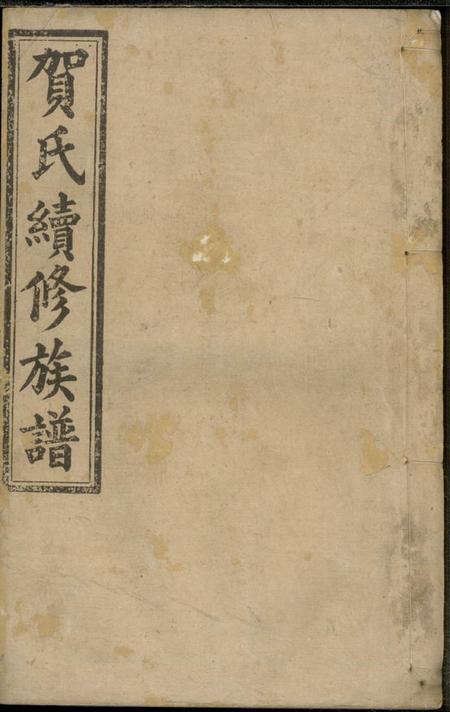 賀氏續修族譜